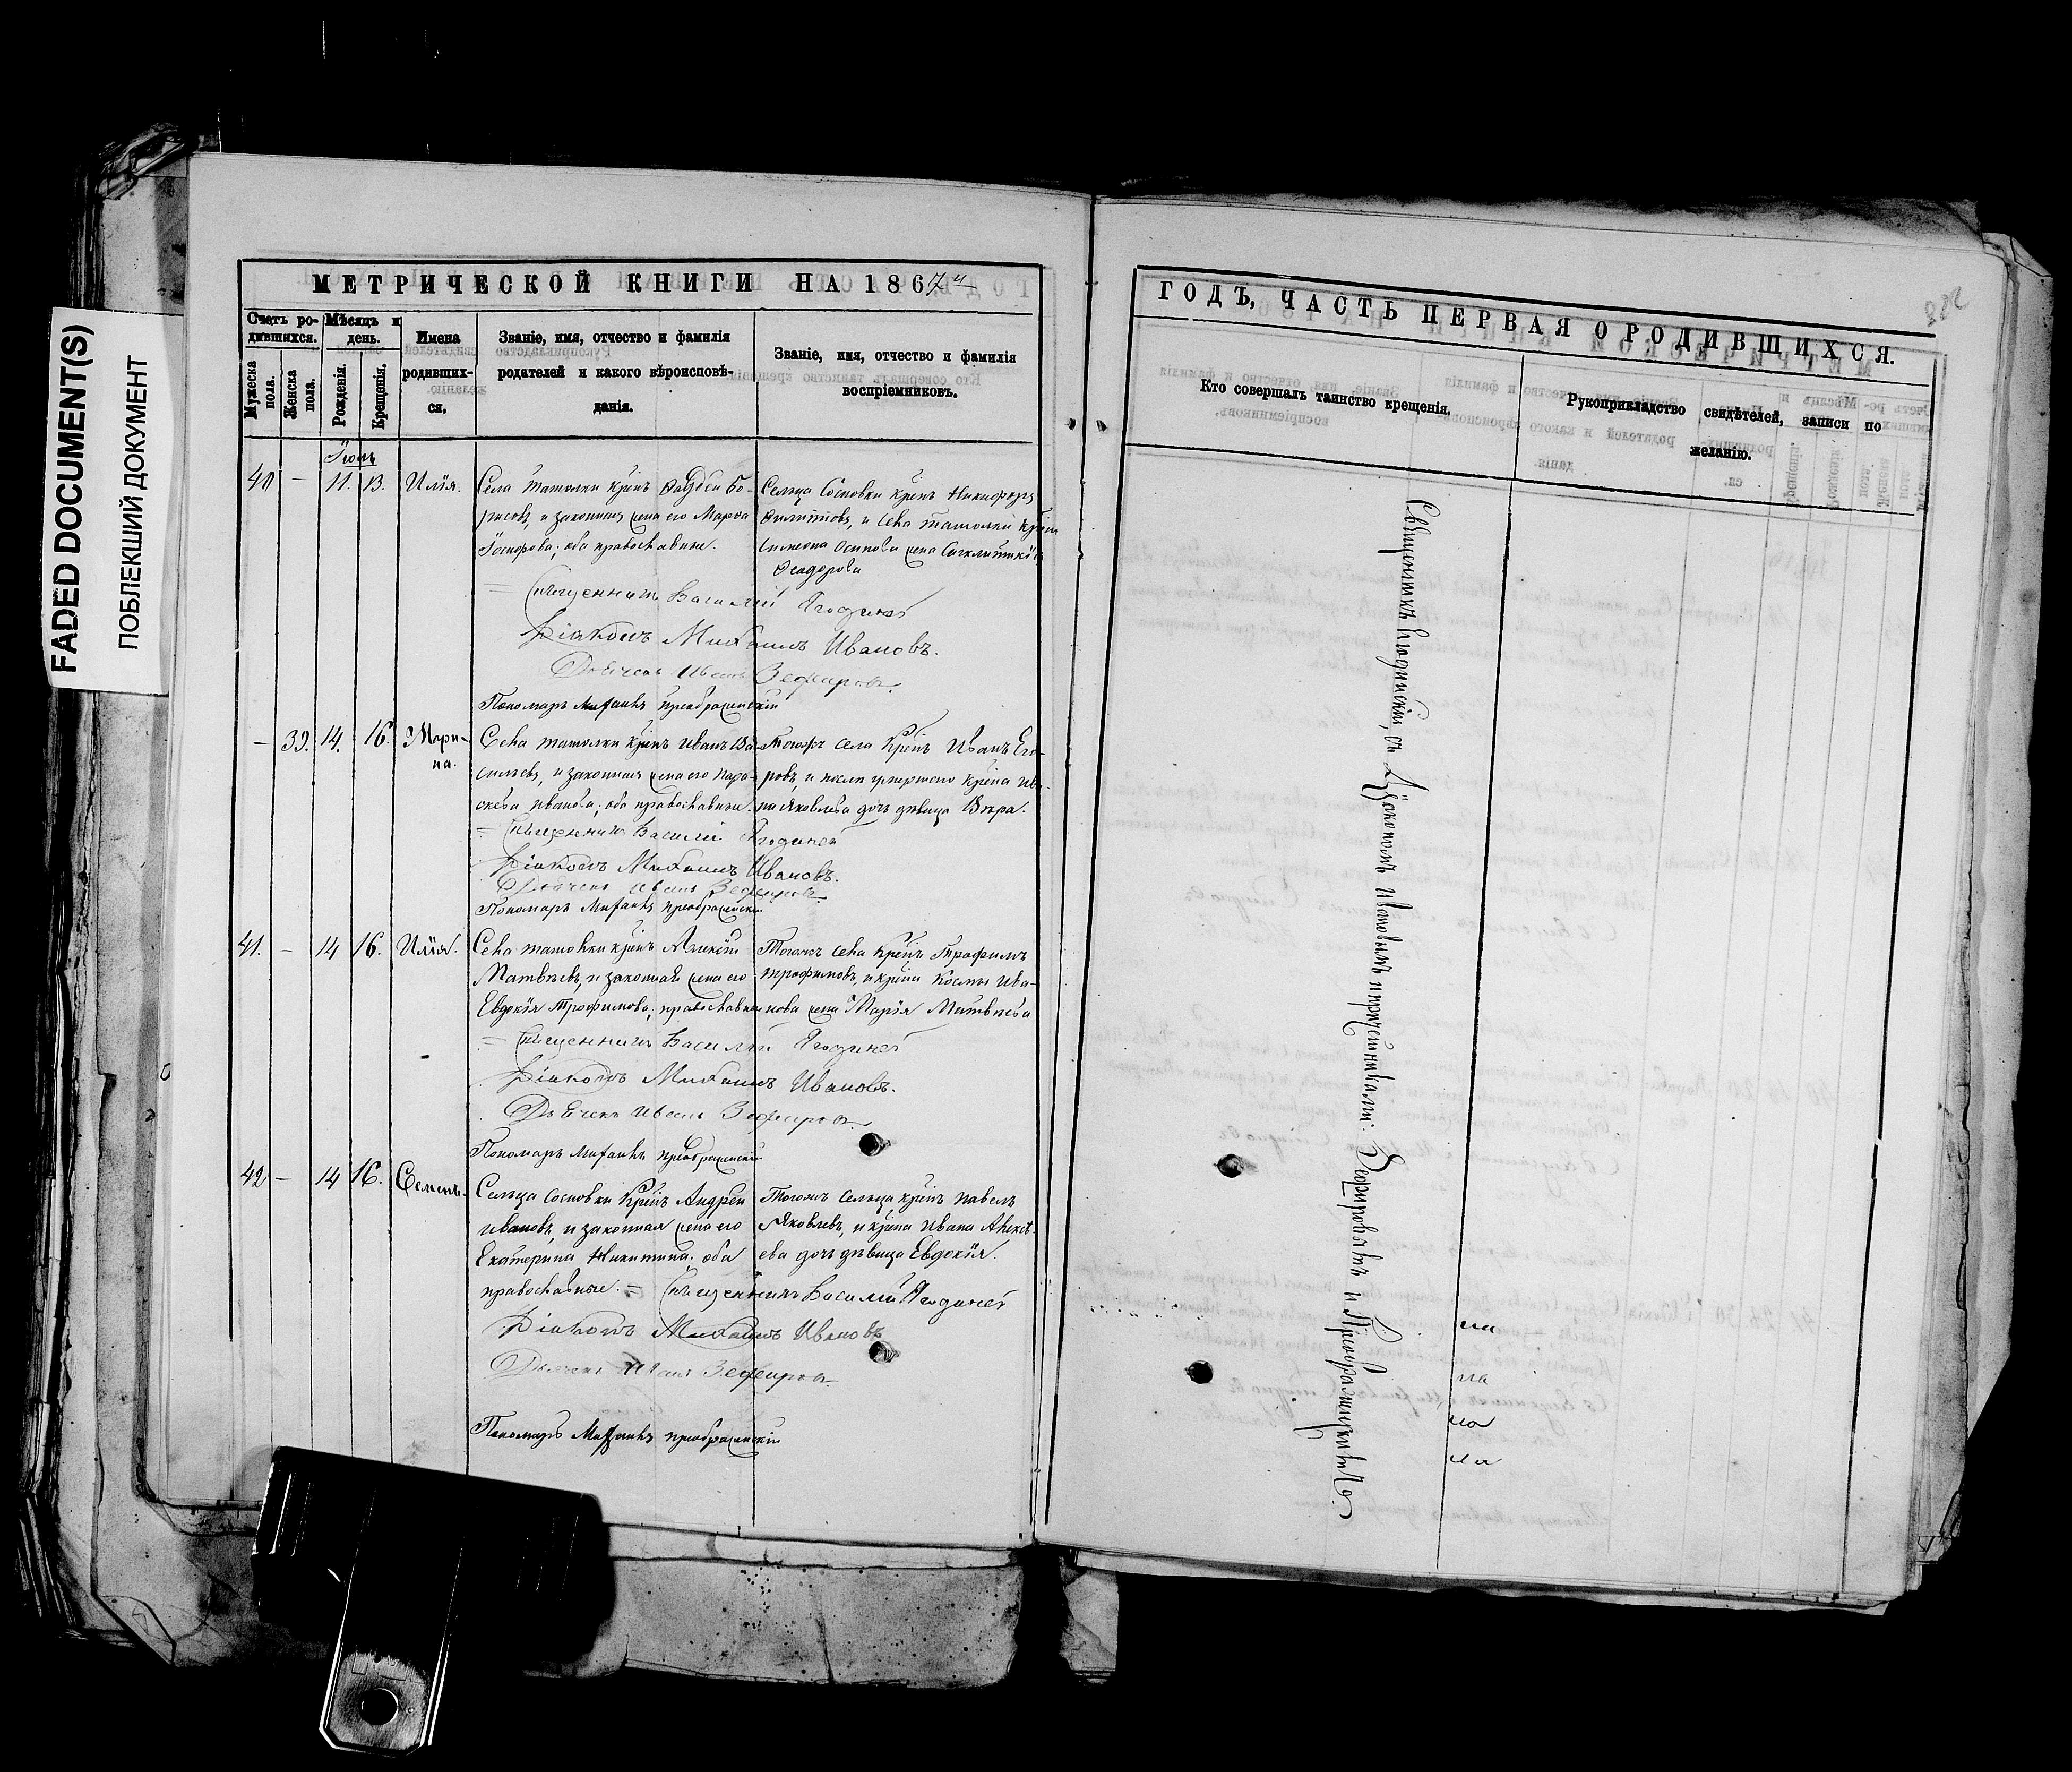 FADED DOCUMENT(S)
ПОБЛЕКШИЙ ДОКУМЕНТ
МЕТРИЧЕСКОЙ КНИГИ НА 1867й
Счетъ ро-
дившихся.
Мужеска
пола.
Женска
пола.
Мѣсяцъ и
день.
Рожденія.
Крещенія.
Имена
родивших-
ся.
Званіе, имя, отчество и фамилія
родителей и какого вѣроисповѣ-
данія.
Званіе, имя, отчество и фамилія
воспріемниковъ.
Іюль
40 — 11. 13. Илія.
Села Татолки крѣнъ Фаддей Бо-
рисовъ, и законная жена его Марѳа
Іосифова; оба православные.
Сельца Сосновки крѣнъ Никифоръ
Филипповъ, и села Татолки крѣнина
Симеона Осипова жена Синклитикія
Ѳеодорова
= Священникъ Василій
Діаконъ Михаилъ Ивановъ.
Дьячекъ Иванъ Зефировъ.
Пономарь Михаилъ Преображенскій
— 39. 14. 16. Мари-
на.
Села Татолки крѣнъ Иванъ Ва-
сильевъ, и законная жена его Пара-
скева Иванова; оба православные.
Тогожъ села крѣнъ Иванъ Его-
ровъ, и послѣ умершаго крѣнина Ива-
на Яковлева дочь дѣвица Вѣра.
= Священникъ Василій
Діаконъ Михаилъ Ивановъ.
Дьячекъ Иванъ Зефировъ.
Пономарь Михаилъ Преображенскій
41. — 14 16. Илія.
Села Татолки крѣнъ Алексій
Матвѣевъ, и законная жена его
Евдокія Трофимова; православные
Тогожъ села крѣнъ Трофимъ
Трофимовъ, и крѣнина Космы Ива-
нова жена Марія Матвѣева
= Священникъ Василій
Діаконъ Михаилъ Ивановъ.
Дьячекъ Иванъ Зефировъ.
Пономарь Михаилъ Преображенскій
42 — 14 16. Семенъ.
Сельца Сосновки крѣнъ Андрей
Ивановъ, и законная жена его
Екатерина Никитина. оба
православные. = Священникъ Василій
Тогожъ сельца крѣнъ Павелъ
Яковлевъ, и крѣнина Ивана Алексѣ-
ева дочь дѣвица Евдокія.
Діаконъ Михаилъ Ивановъ
Дьячекъ Иванъ Зефировъ.
Пономарь Михаилъ Преображенскій
ГОДЪ, ЧАСТЬ ПЕРВАЯ О РОДИВШИХСЯ.
Кто совершалъ таинство крещенія.
Рукоприкладство свидѣтелей, записи по
желанію.
Священникъ съ Діакономъ Ивановымъ и причетниками:
Зефировымъ и Преображенскимъ.